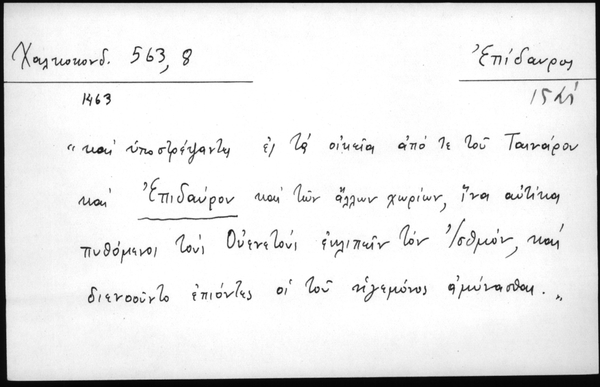 Χαλκοκονδ. 563, 8
Ἐπίδαυρος
1463
"καὶ ὑποστρέψαντες ἐς τὰ οἰκεῖα ἀπό τε τοῦ Ταινάρου
καὶ Ἐπιδαύρου καὶ τῶν ἄλλων χωρίων, ἵνα αὐτίκα
πυθόμενοι τοὺς Οὐενετοὺς ἐκλιπεῖν τὸν Ἰσθμόν, καὶ
διενοοῦντο ἐπιόντες οἱ τοῦ ἡγεμόνος ἀμύνασθαι."